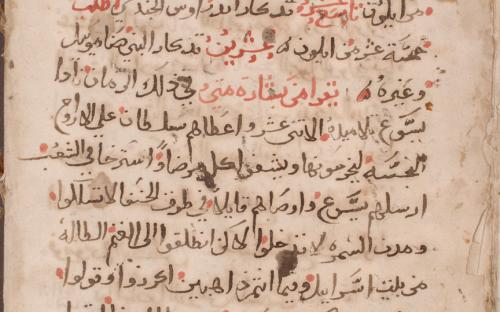 من ايلون تاسع عشر تدكار اندراوس الجندي تطلب
خمسة عشر من ايلون عشرين تدكار النبي صامويل
وغيره يقرا من بشاره متى في ذلك الزمان دعا
يسوع تلاميده الاتنى عشر واعطاهم سلطان على الارواح
النجسه ليخرجونها ويشفون كل مرضا واسترخا في الشعب
ارسلهم يسوع واوصاهم قايلا في طرق الحنفا لا تسلكوا
ومدن السمره لا تدخلوا لاكن انطلقوا الى الغنم الظاله
من بيت اسراييل وفيما انتم داهبين اكرزوا وقولوا